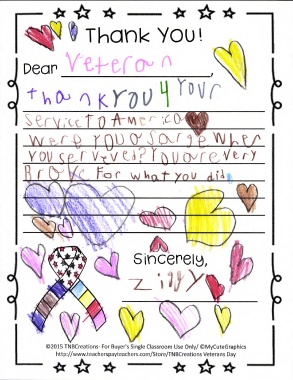 Thank You!
Dear Veteran,
thank YOU 4 YOUr
service TO America
were YOU a sarge when
you serveved? You are very
Brave. For what you did.
Sincerely,
©2015 TNBCreations- For Buyer's Single Classroom Use Only/ ©MyCuteGraphics
http://www.teacherspayteachers.com/Store/TNBCreations Veterans Day